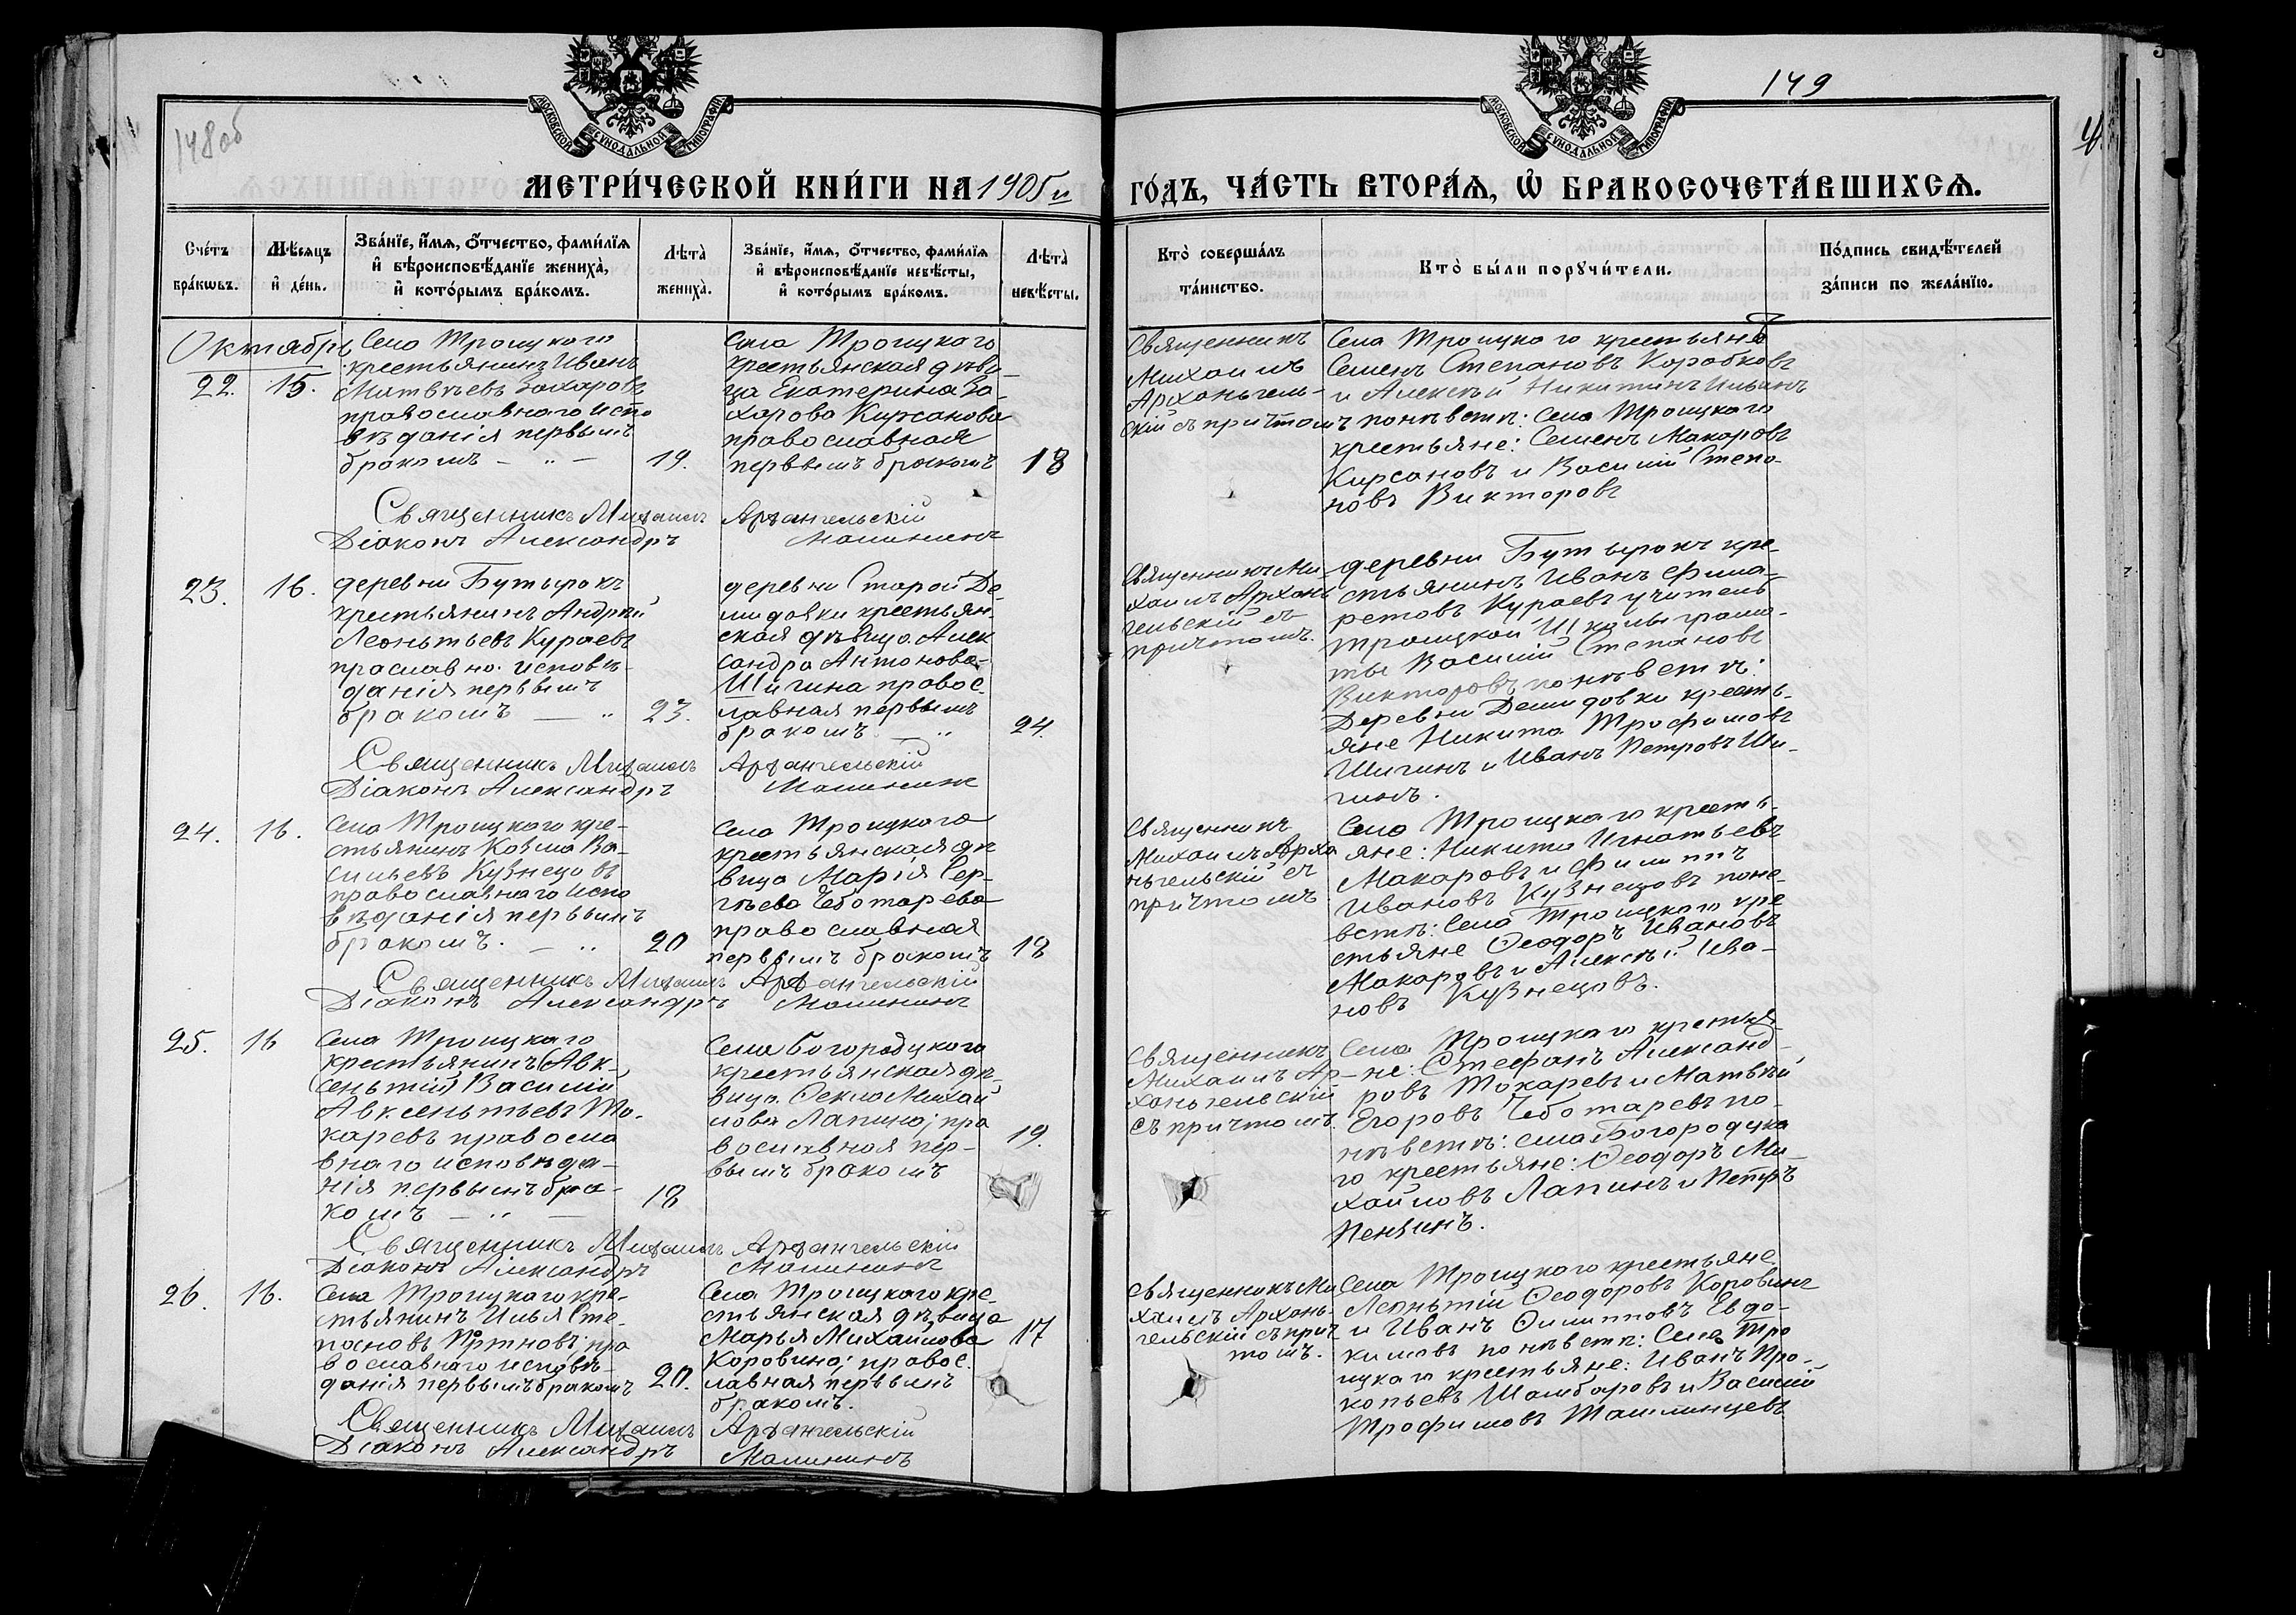 148 об
149
МОСКОВСКОЙ СУНОДАЛЬНОЙ ТИПОГРАФІИ
МОСКОВСКОЙ СУНОДАЛЬНОЙ ТИПОГРАФІИ
МЕТРИ́ЧЕСКОЙ КНИ́ГИ НА 1905 й
ГО́ДЪ, ЧА́СТЬ ВТОРА́Я, Ѽ БРАКОСОЧЕТА́ВШИХСЯ.
Сче́тъ
бра́кѡвъ.
Мѣ́сяцъ
и҆ де́нь.
Зва́нїе, и҆́мя, ѻ҆́тчество, фами́лїя
и҆ вѣроисповѣ́данїе жениха̀,
и҆ кото́рымъ бра́комъ.
Лѣта̀
жениха̀.
Зва́нїе, и҆́мя, ѻ҆́тчество, фами́лїя
и҆ вѣроисповѣ́данїе невѣ́сты,
и҆ кото́рымъ бра́комъ.
Лѣта̀
невѣ́сты.
Кто̀ соверша́лъ
та́инство.
Кто̀ бы́ли порꙋчи́тели.
По́дпись свидѣ́телей
за́писи по жела́нїю.
Октябрь
22.
15.
Села Троицкаго
крестьянинъ Иванъ
Матвѣевъ Захаровъ
православнаго испо
вѣданія первымъ
бракомъ — „ —
19.
Села Троицкаго
крестьянская дѣви-
ца Екатерина За-
харова Кирсанова
православная
первымъ бракомъ
18
Священникъ
Михаилъ
Архангель-
скій съ причтомъ
Села Троицкаго крестьяне
Семенъ Степановъ Коробковъ
и Алексѣй Никитинъ Ильинъ
по невѣстѣ: Села Троицкаго
крестьяне: Семенъ Макаровъ
Кирсановъ и Василій Степа-
новъ Викторовъ
Священникъ Михаилъ Архангельскій
Діаконъ Александръ Малининъ
23.
16.
деревни Бутырокъ
крестьянинъ Андрей
Леонтьевъ Кураевъ
праславно. исповѣ-
данія первымъ
бракомъ — „
23.
деревни Старой Де-
мидовки крестьян-
ская дѣвица Алек
сандра Антонова-
Шигина правос-
лавная первымъ
бракомъ — „
24.
Священникъ Ми-
хаилъ Архань
гельскій съ
причтомъ.
деревни Бутырокъ кре-
стьянинъ Иванъ Фила-
ретовъ Кураевъ учитель
Троицкой Школы грамо-
ты Василій Степановъ
Викторовъ по невѣстѣ:
Деревни Демидовки кресть-
яне Никита Трофимовъ
Шигинъ и Иванъ Петровъ Ши-
гинъ.
Священникъ Михаилъ Архангельскій
Діаконъ Александръ Малининъ
24.
16.
Села Троицкаго кре-
стьянинъ Козма Ва-
сильевъ Кузнецовъ
православнаго испо
вѣданія первымъ
бракомъ. — „
20
Села Троицкаго
крестьянская дѣ
вица Марія Сер-
гѣева Чеботарева
православная
первымъ бракомъ
18
Священникъ
Михаилъ Арха
ньгельскій съ
причтомъ
Села Троицкаго кресть-
яне: Никита Игнатьевъ
Макаровъ и Филиппъ
Ивановъ Кузнецовъ по не-
вѣстѣ: Села Троицкаго кре
стьяне Ѳеодоръ Ивановъ
Макаровъ и Алексѣй Ива-
новъ Кузнецовъ.
Священникъ Михаилъ Архангельскій
Діаконъ Александръ Малининъ
25.
16
Села Троицкаго
крестьянинъ (Авк-
сентій) Василій
Авксентьевъ То-
каревъ правосла
внаго исповѣда-
нія первымъ бра-
комъ — „ —
18
Села Богородцкого
крестьянская дѣ-
вица Ѳекла Михай
лова Лапина; пра
вославная пер-
вымъ бракомъ
19.
Священникъ
Михаилъ Ар-
ханьгельскій
съ причтомъ.
Села Троицкаго крестья-
не: Стефанъ Александ-
ровъ Токаревъ и Матвѣй
Егоровъ Чеботаревъ по-
невѣстѣ: села Богородцка
го крестьяне: Ѳеодоръ Ми-
хайловъ Лапинъ и Петръ
Пензинъ.
Священникъ Михаилъ Архангельскій
Діаконъ Александръ Малининъ
26.
16.
Села Троицкаго кре-
стьянинъ Илья Сте-
пановъ Портновъ; пра
вославнаго исповѣ-
данія первымъ бракомъ
20.
Села Троицкаго кре-
стьянская дѣвица
Марья Михайлова
Коровина; правос-
лавная первымъ
бракомъ.
17
Священникъ Ми
хаилъ Архань-
гельскій съ прич
томъ.
Села Троицкаго крестьяне
Леонтій Ѳеодоровъ Коровинъ
и Иванъ Филипповъ Евдо-
кимовъ по невѣстѣ: Села Тро
ицкаго крестьяне: Иванъ Про-
копьевъ Шамбаровъ и Василій
Трофимовъ Ташлинцевъ
Священникъ Михаилъ Архангельскій
Діаконъ Александръ Малининъ